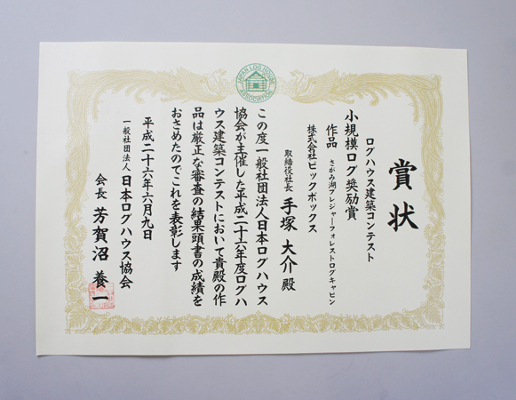 JAPAN LOG HOUSE ASSOCIATION
賞状
ログハウス建築コンテスト
小規模ログ奨励賞
作品 さがみ湖プレジャーフォレストログキャビン
株式会社ビックボックス
取締役社長 手塚 大介 殿
この度一般社団法人日本ログハウス
協会が主催した平成二十六年度ログハ
ウス建築コンテストにおいて貴殿の作
品は厳正な審査の結果頭書の成績を
おさめたのでこれを表彰します
平成二十六年六月九日
一般社団法人 日本ログハウス協会
会長 芳賀沼 養一